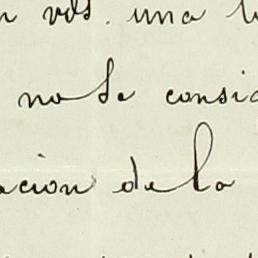 vds. una
no se consi
acion de la